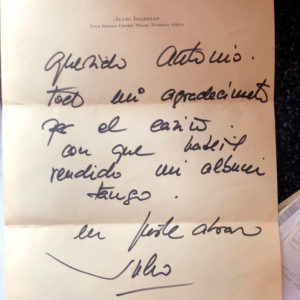 JULIO IGLESIAS
Querido Antonio.
todo mi agradecimiento
por el cariño
con que habeis
vendido mi album
tango.
un fuerte abrazo
Julio